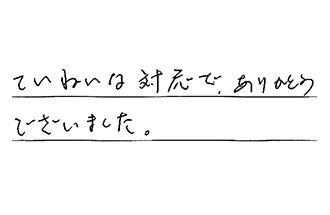 ていねいな対応で、ありがとう
ございました。